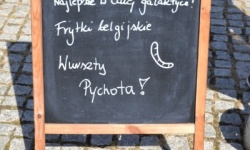 Najlepsze w całej galaktyce!
Frytki belgijskie
Wurszty
Pychota!